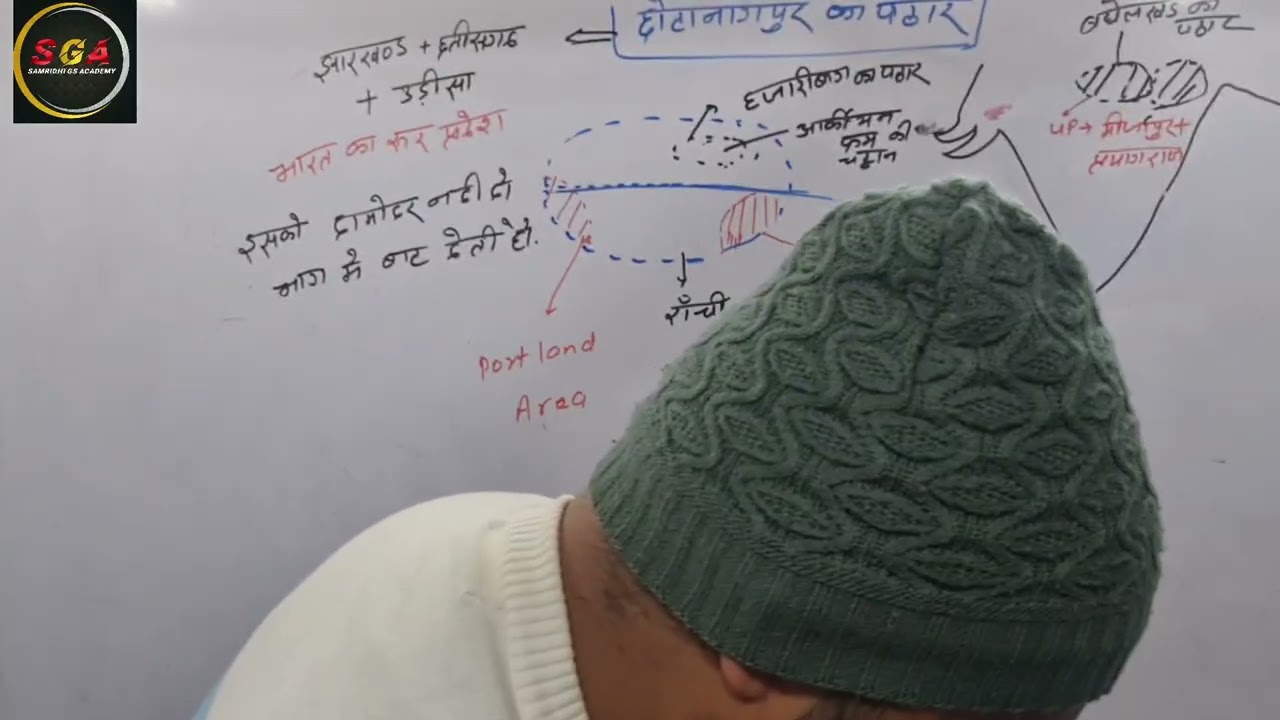 SGA
SAMRIDHI GS ACADEMY
छोटानागपुर का पठार
झारखण्ड + छत्तीसगढ
+ उड़ीसा
भारत का रूर प्रदेश
इसको दामोदर नदी दो
भाग मे बाट देती है.
हजारीबाग का पठार
आर्कीयन
क्रम की
चट्टान
राँची
Portland
Area
बघेलखण्ड का
पठार
UP → मीर्जापुर +
प्रयागराज